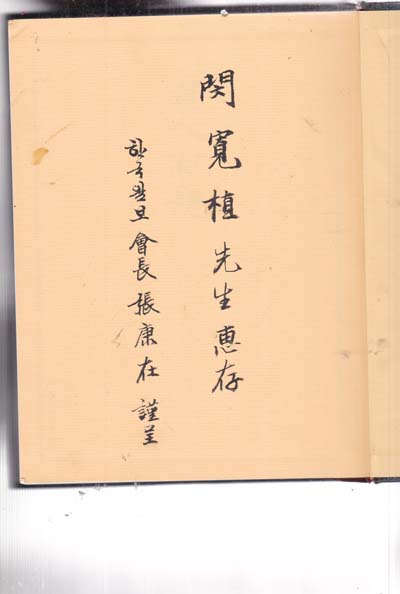 閔寬植先生惠存
한국일보 會長 張康在 謹呈